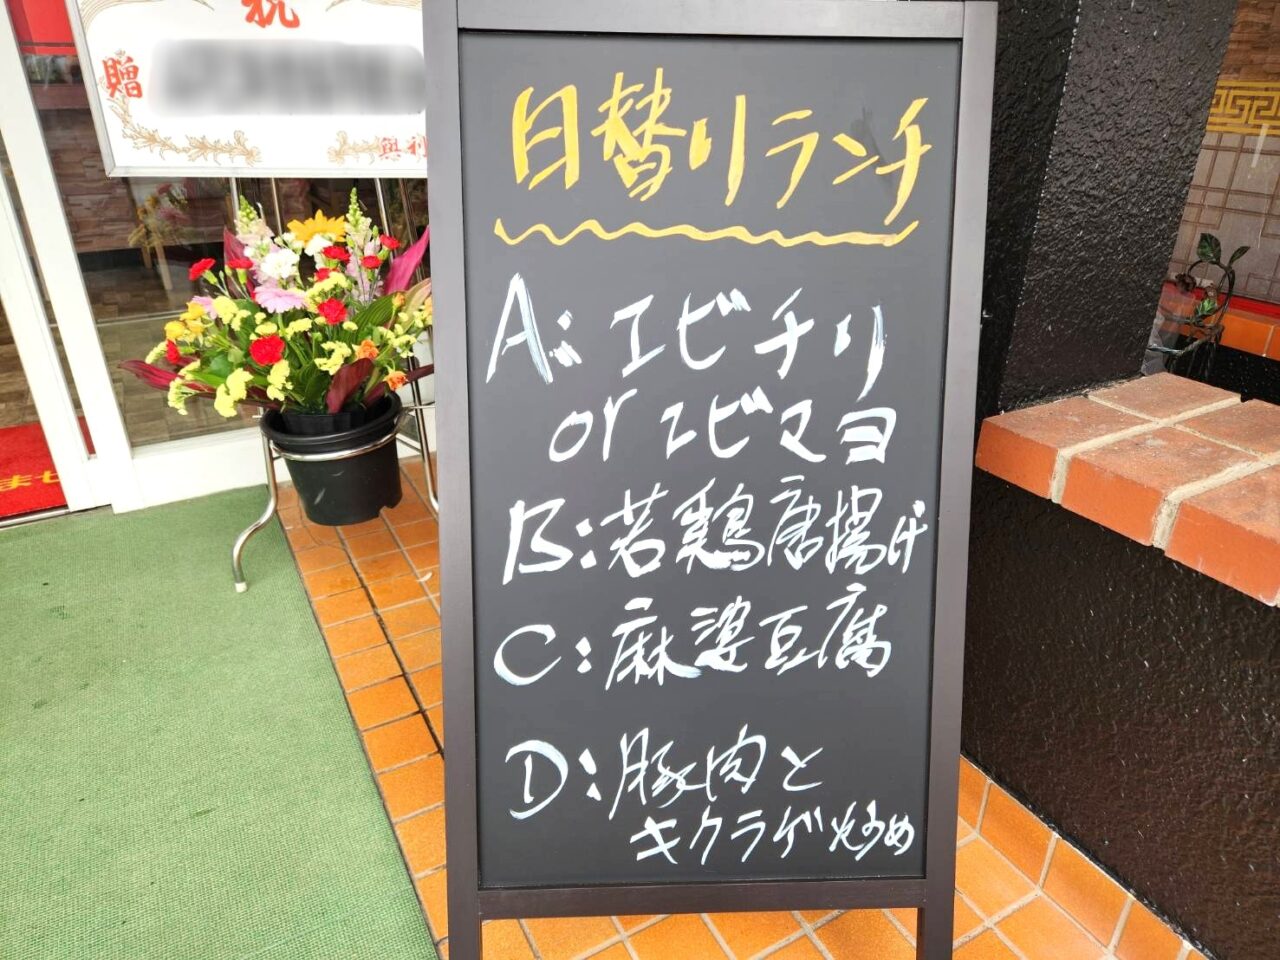 祝
贈
興利
日替りランチ
A:エビチリ
orエビマヨ
B:若鶏唐揚げ
C:麻婆豆腐
D:豚肉と
キクラゲ炒め
ませ